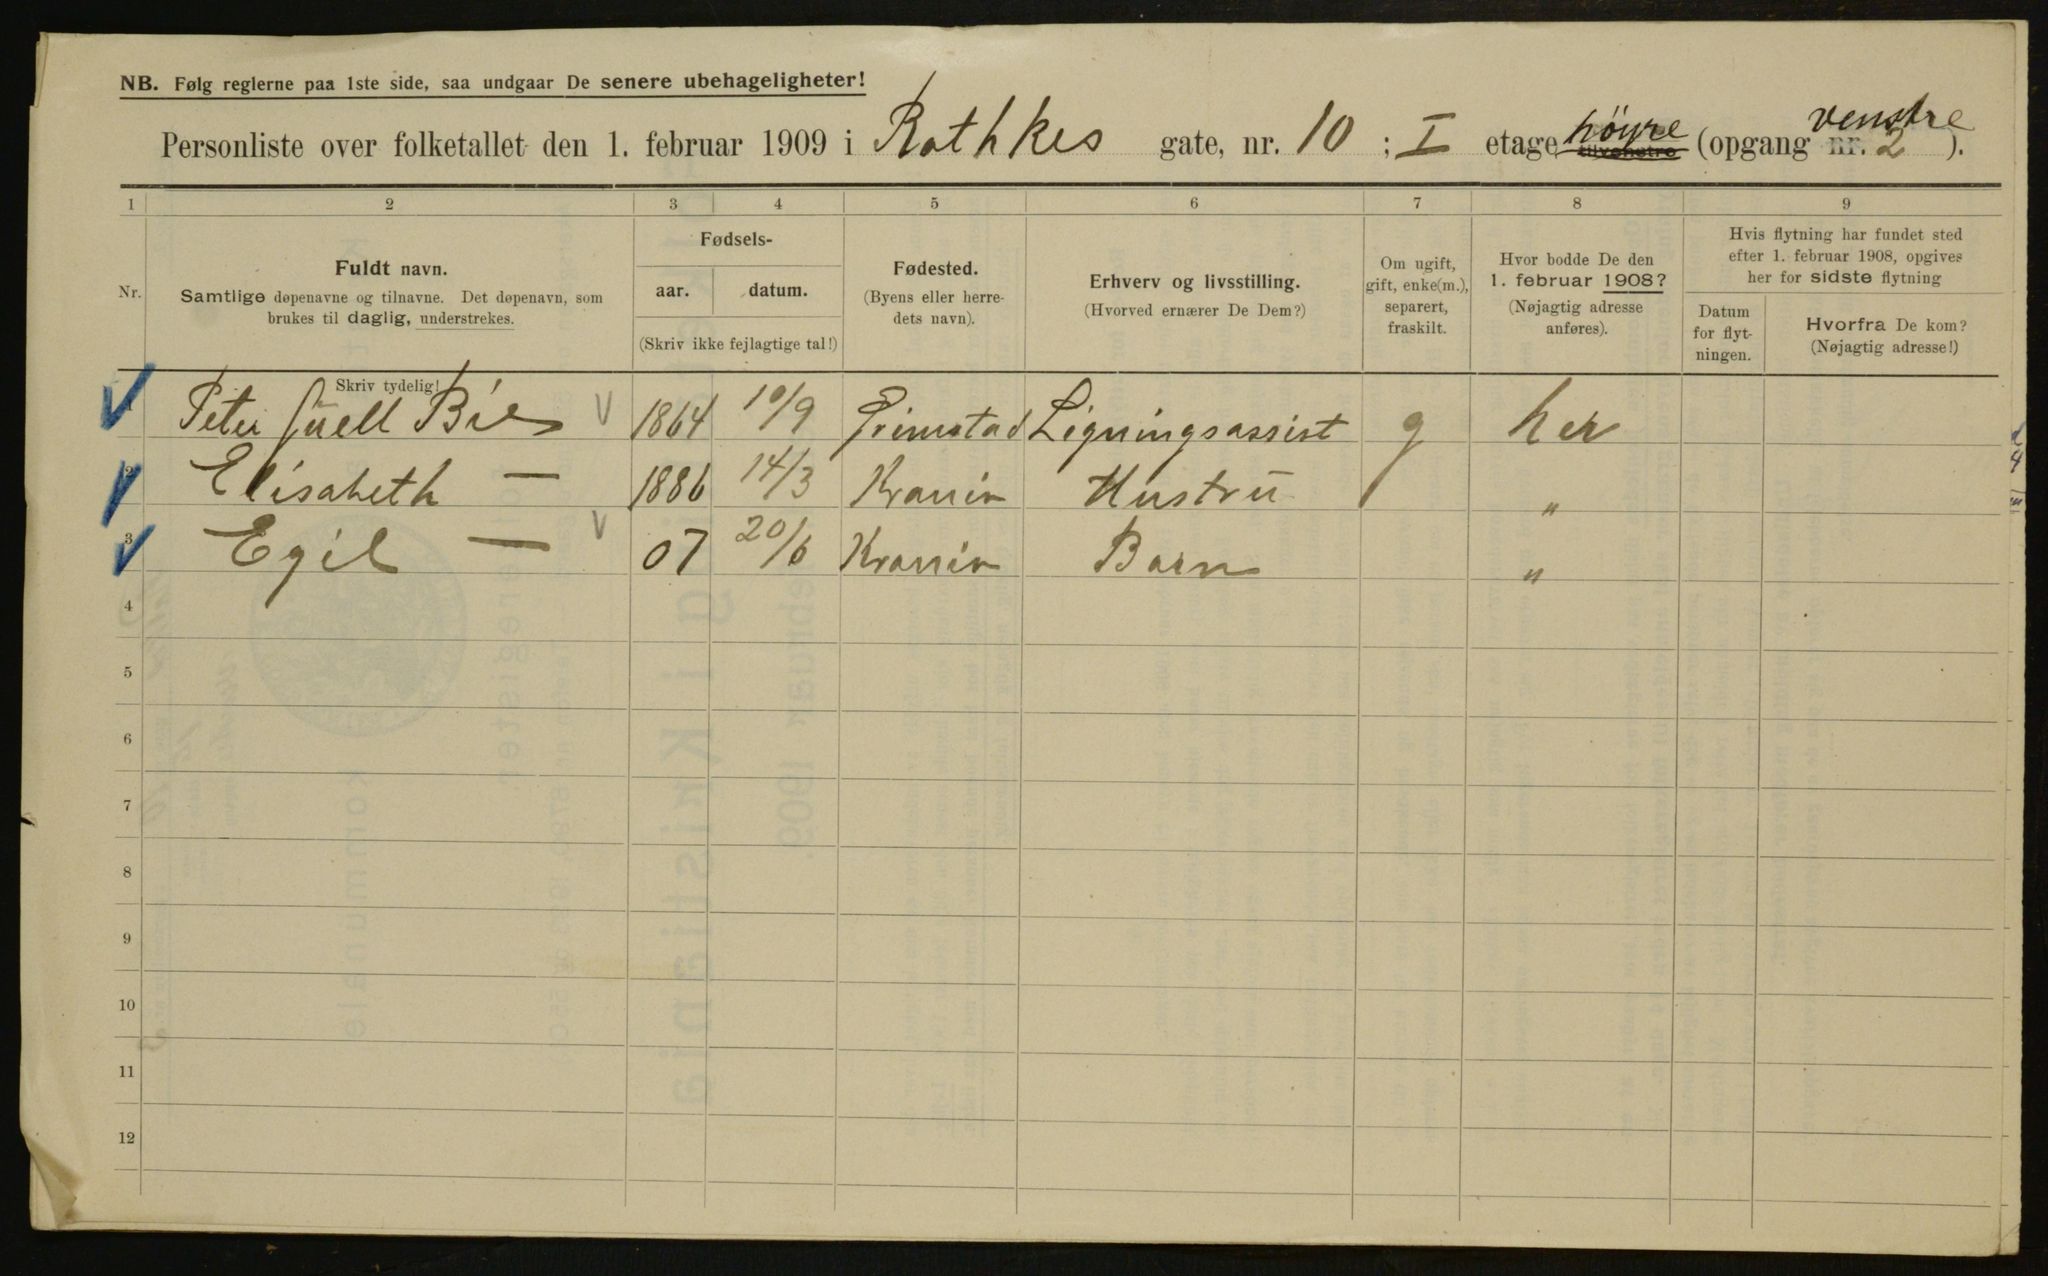 NB. Følg reglerne paa 1ste side, saa undgaar De senere ubehageligheter!
venstre
Personliste over folketallet den 1. februar 1909 i Rathkes gate, nr. 10 ; I etage høyre tilvenstre (opgang nr. 2 ).
1 2 3 4 5 6 7 8 9
Nr.
Fuldt navn.
Samtlige døpenavne og tilnavne. Det døpenavn, som
brukes til daglig, understrekes.
Skriv tydelig!
Fødsels-
aar. datum.
(Skriv ikke fejlagtige tal!)
Fødested.
(Byens eller herre-
dets navn).
Erhverv og livsstilling.
(Hvorved ernærer De Dem?)
Om ugift,
gift, enke(m.),
separert,
fraskilt.
Hvor bodde De den
1. februar 1908?
(Nøjagtig adresse
anføres).
Hvis flytning har fundet sted
efter 1. februar 1908, opgives
her for sidste flytning
Datum
for flyt-
ningen.
Hvorfra De kom?
(Nøjagtig adresse!)
Peter Juell Bie 1864 10/9 Grimstad Ligningsassist g her
2 Elisabeth — 1886 14/3 Krania Hustru "
3 Egil — 07 20/6 Krania Barn "
4
5
6
7
8
9
10
11
12